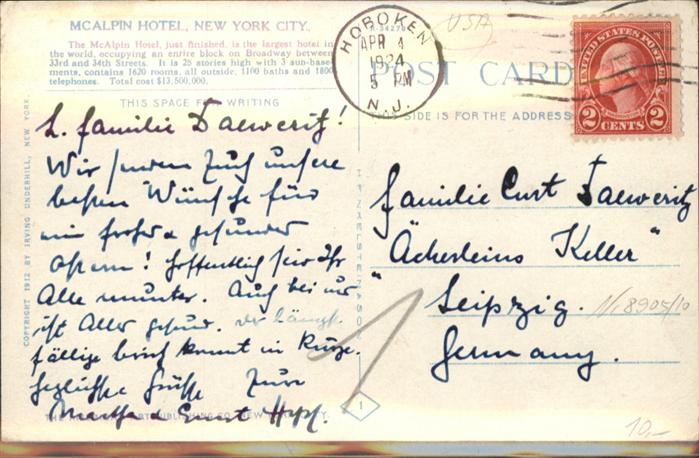 McALPIN HOTEL, NEW YORK CITY.
The McAlpin Hotel, just finished, is the largest hotel in
the world, occupying an entire block on Broadway between
33rd and 34th Streets. It is 25 stories high with 3 sub-base-
ments, contains 1620 rooms, all outside, 1100 baths and 1800
telephones. Total cost $13,500,000.
THIS SPACE FOR WRITING
L. Familie Taeweritz!
Wir senden Euch unsere
besten Wünsche für
ein frohes & gesundes
Ostern! Hoffentlich seid Ihr
Alle munter. Auch bei uns
ist Alles gesund. Der längst
fällige Brief kommt in Kürze.
Herzlichste Grüsse Eure
Martha & Curt
COPYRIGHT 1912 BY IRVING UNDERHILL, NEW YORK
HOBOKEN
APR 4
1924
5 PM
N.J.
USA
POST CARD
THIS SIDE IS FOR THE ADDRESS
UNITED STATES POSTAGE
2 CENTS 2
Familie Curt Taeweritz
"Äckerleins Keller"
Leipzig.
Germany.
N. 8905/10
1
10,-